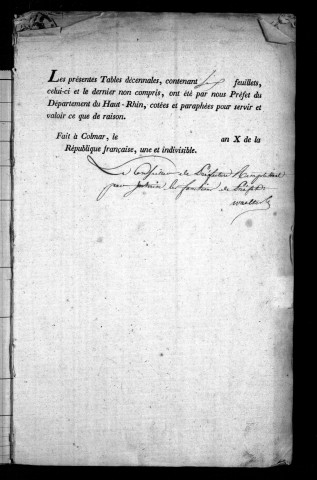 Les présentes Tables décennales, contenant feuillets,
celui-ci et le dernier non compris, ont été par nous Préfet du
Département du Haut-Rhin, cotées et paraphées pour servir et
valoir ce que de raison.
Fait à Colmar, le an X de la
République française, une et indivisible.
Le Conseiller de Préfecture
pour les fonctions de Préfet